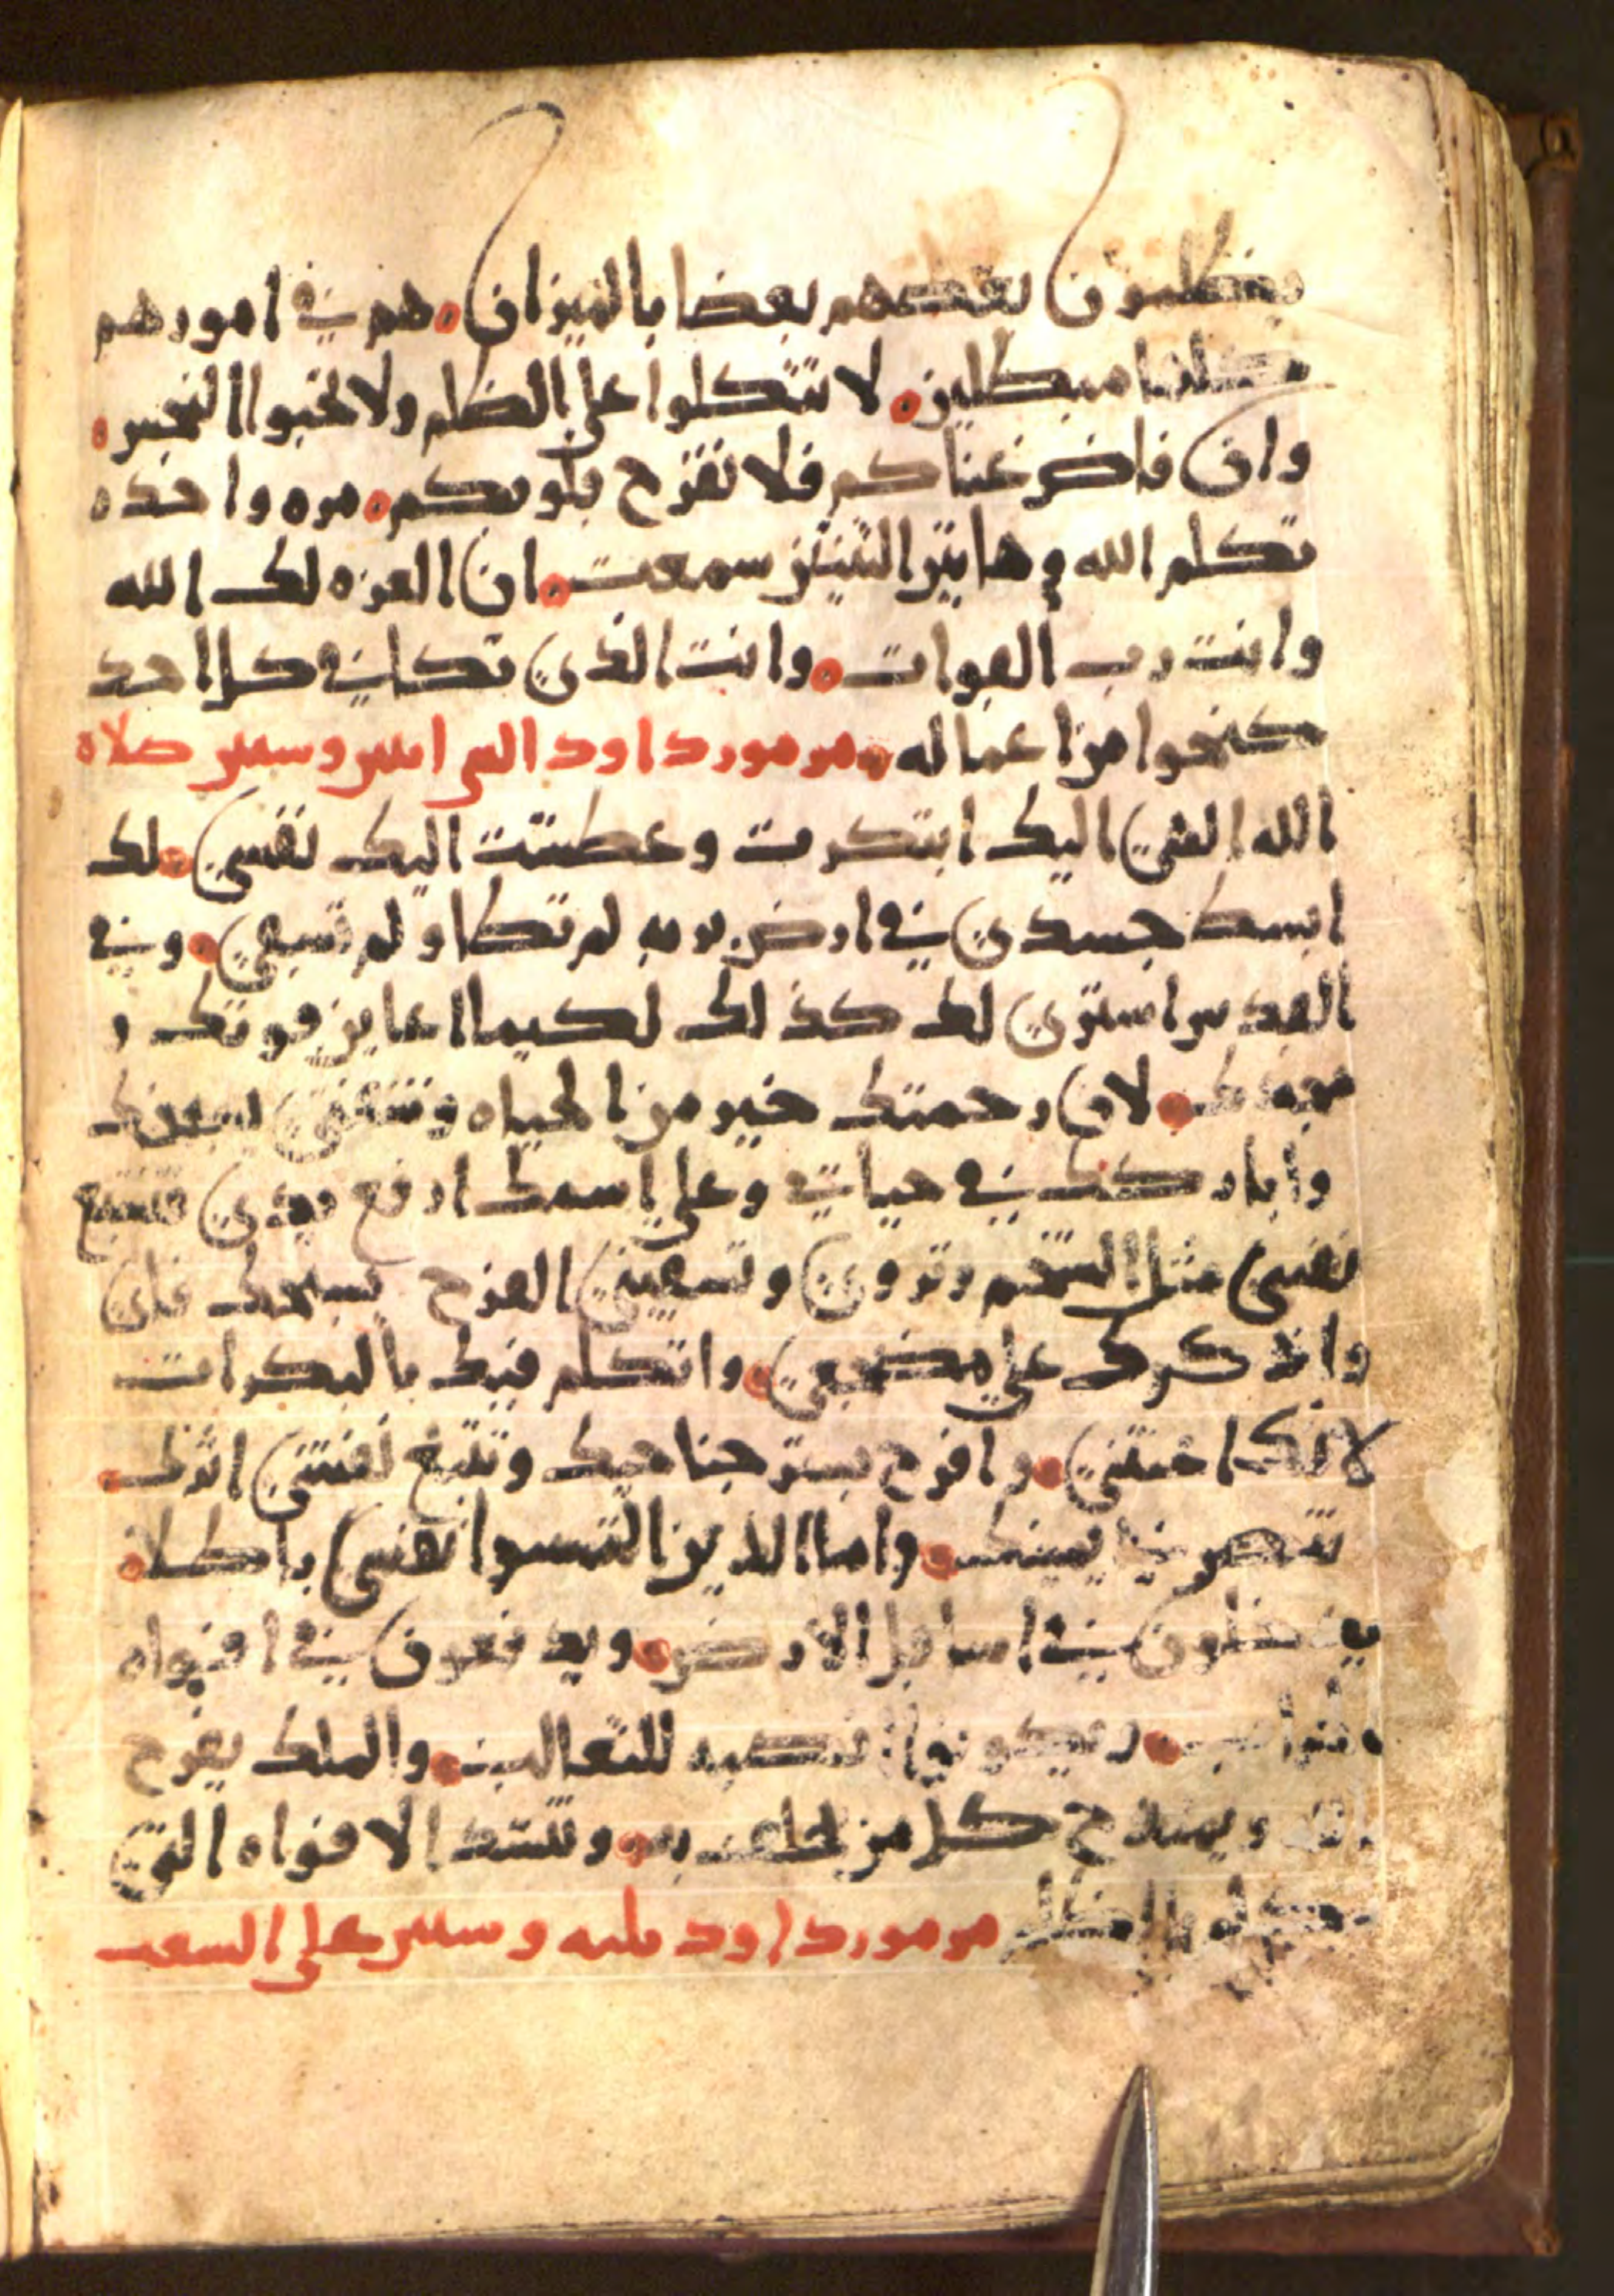 يظلمون بعضهم بعضا بالميزان. هم في امورهم
كلها مبطلين. لا تتكلوا على الظلم ولا تحبوا النجس.
وان فاض غناكم فلا تفرح قلوبكم. مره واحده
تكلم الله وهاتين التنتين سمعت. ان العزه لك الله
وانت رب القوات. وانت الذي تكافي كل احد
كنحوا من اعماله. مزمور داود الثاني وستين صلاه
الله الهي اليك ابتكرت وعطشت اليك نفسي. لك
ابسط جسدي في ارض بريه لم تطا ولم تسقي. وفي
القدس استري لك كذلك لكيما اعاين قوتك و
مجدك. لان رحمتك خير من الحياه وشفتي يسبحنك
وابارككك في حياتي وعلى اسمك ارفع يدي فتشبع
نفسي مثل الشحم وتروي وشفتي الفرح يسبحك فاي
واذكرك على مضجعي. واتكلم فيك بالبكرات
لانك اعنتني. وافرح بستر جناحيك وتتبع نفسي اثرك.
تنصرني يمينك. واما الذين التمسوا نفسي باطلا.
يدخلون في اسافل الارض. ويدفعون في افواه
الحراب. ويكونوا انصبه للثعالب. والملك يفرح
بالله ويمتدح كل من يحلف به. وتستد الافواه التي
تتكلم بالظلم مزمور داود ثلثه وستين على السعب